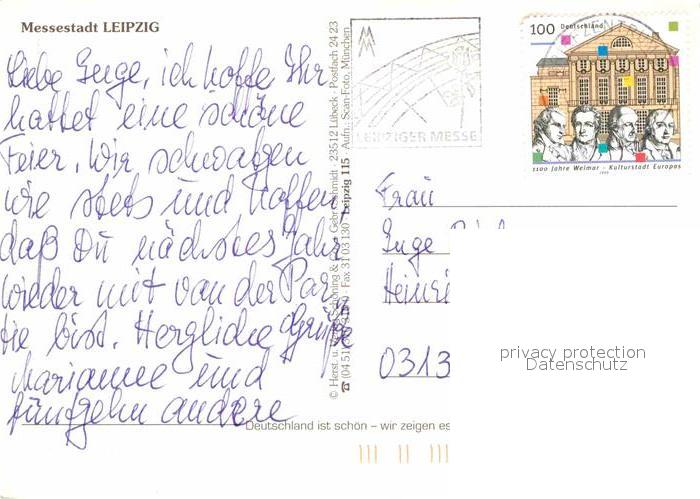 Messestadt LEIPZIG
Liebe Inge, ich hoffe Ihr
hattet eine schöne
Feier. Wir schwatzen
wie stets und hoffen
daß Du nächstes Jahr
wieder mit von der Par
tie bist. Herzliche Grüße
Marianne und
fünfzehn andere
© Herst. u. Schöning & Gebr. Schmidt · 23512 Lübeck · Postfach 24 23
☎ (04 51) Fax 31 03 130 · Leipzig 115 Aufn.: Scan-Foto, München
LEIPZIGER MESSE
100 Deutschland
1100 Jahre Weimar - Kulturstadt Europas
1999
Frau
Inge
Heinri
0313
privacy protection
Datenschutz
Deutschland ist schön – wir zeigen es